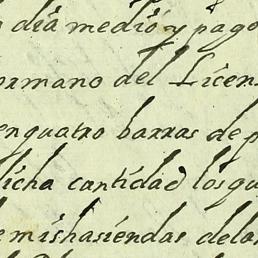 dia medio y pago
ermano del Licen
enquatro barras de p
dicha cantidad los qu
e mishasiendas dela